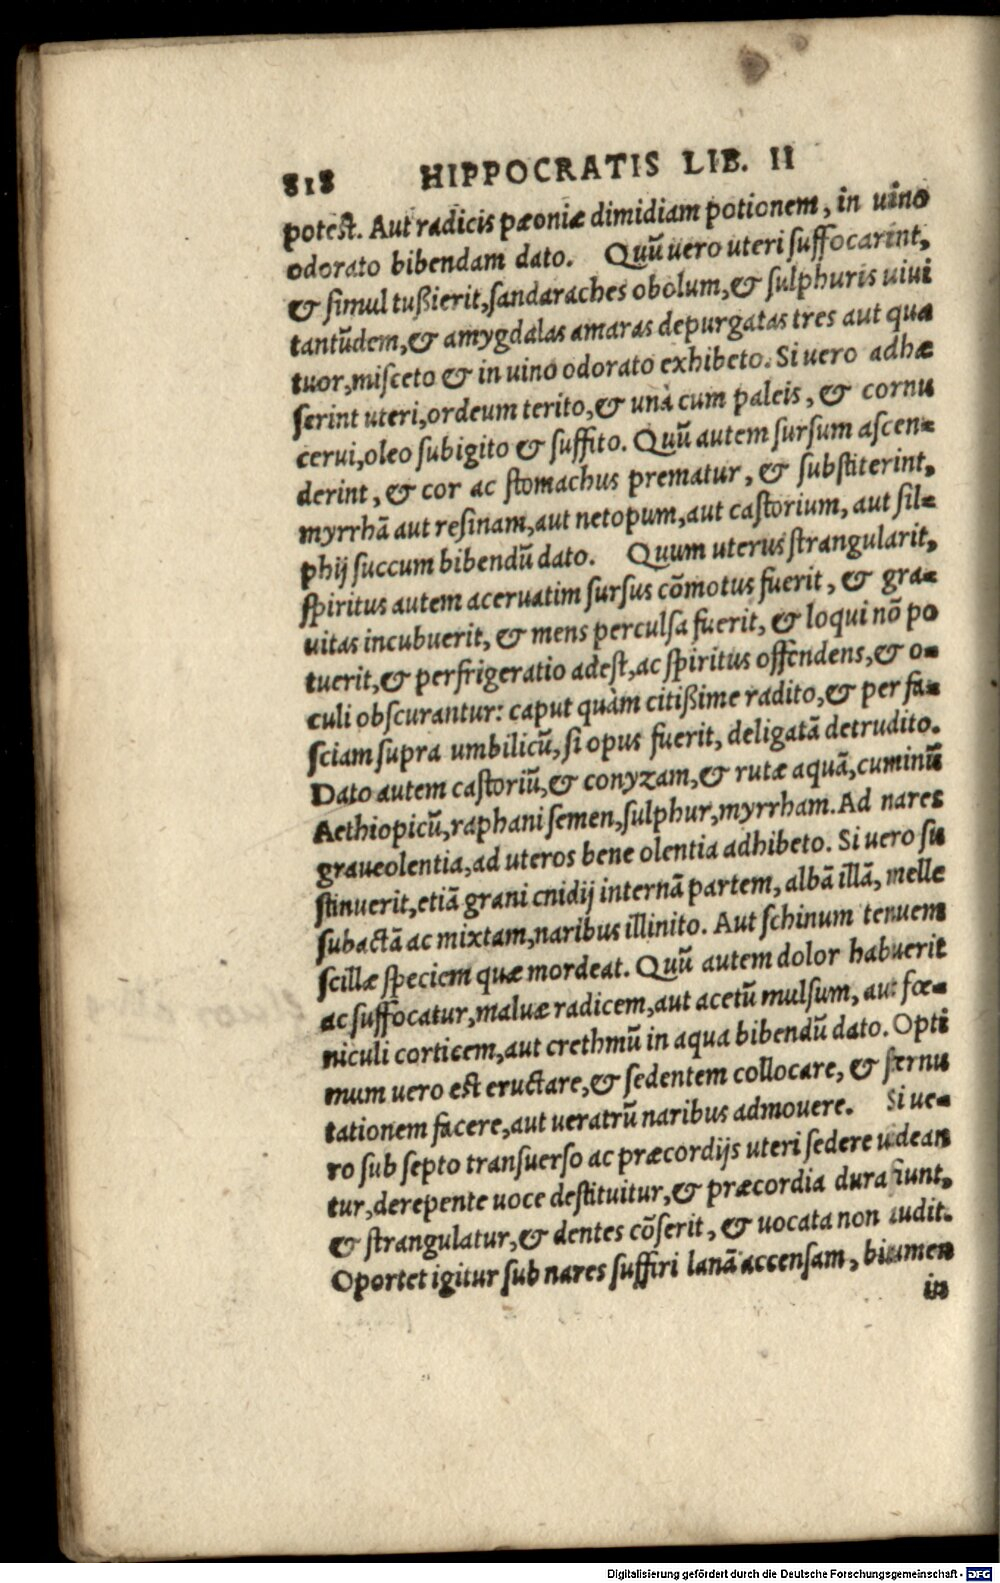 818 HIPPOCRATIS LIB. II
potest. Aut radicis pæoniæ dimidiam potionem, in uino
odorato bibendam dato. Quũ uero uteri ſuffocarint,
& ſimul tußierit, ſandaraches obolum, & ſulphuris uiui
tantũdem, & amygdalas amaras depurgatas tres aut qua
tuor, miſceto & in uino odorato exhibeto. Si uero adhæ
ſerint uteri, ordeum terito, & unà cum paleis, & cornu
cerui, oleo ſubigito & ſuffito. Quũ autem ſurſum aſcen-
derint, & cor ac ſtomachus prematur, & ſubſtiterint,
myrrhã aut reſinam, aut netopum, aut caſtorium, aut ſil-
phij ſuccum bibendũ dato. Quum uterus ſtrangularit,
ſpiritus autem aceruatim ſurſus cõmotus fuerit, & gra-
uitas incubuerit, & mens perculſa fuerit, & loqui nõ po
tuerit, & perfrigeratio adeſt, ac ſpiritus offendens, & o-
culi obſcurantur: caput quàm citißime radito, & per fa-
ſciam ſupra umbilicũ, ſi opus fuerit, deligatã detrudito.
Dato autem caſtoriũ, & conyzam, & rutæ aquã, cuminũ
Aethiopicũ, raphani ſemen, ſulphur, myrrham. Ad nares
graueolentia, ad uteros bene olentia adhibeto. Si uero ſu
ſtinuerit, etiã grani cnidij internã partem, albã illã, melle
ſubactã ac mixtam, naribus illinito. Aut ſchinum tenuem
ſcillæ ſpeciem quæ mordeat. Quũ autem dolor habuerit
ac ſuffocatur, maluæ radicem, aut acetũ mulſum, aut fœ-
niculi corticem, aut crethmũ in aqua bibendũ dato. Opti
mum uero est eructare, & ſedentem collocare, & ſternu
tationem facere, aut ueratrũ naribus admouere. Si ue-
ro ſub ſepto tranſuerſo ac præcordijs uteri ſedere uidean
tur, derepente uoce deſtituitur, & præcordia dura fiunt,
& ſtrangulatur, & dentes cõſerit, & uocata non audit.
Oportet igitur ſub nares ſuffiri lanã accenſam, bitumen
in
Digitalisierung gefördert durch die Deutsche Forschungsgemeinschaft - DFG